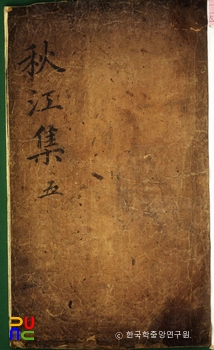 秋江集 五
PU
RC
© 한국학중앙연구원